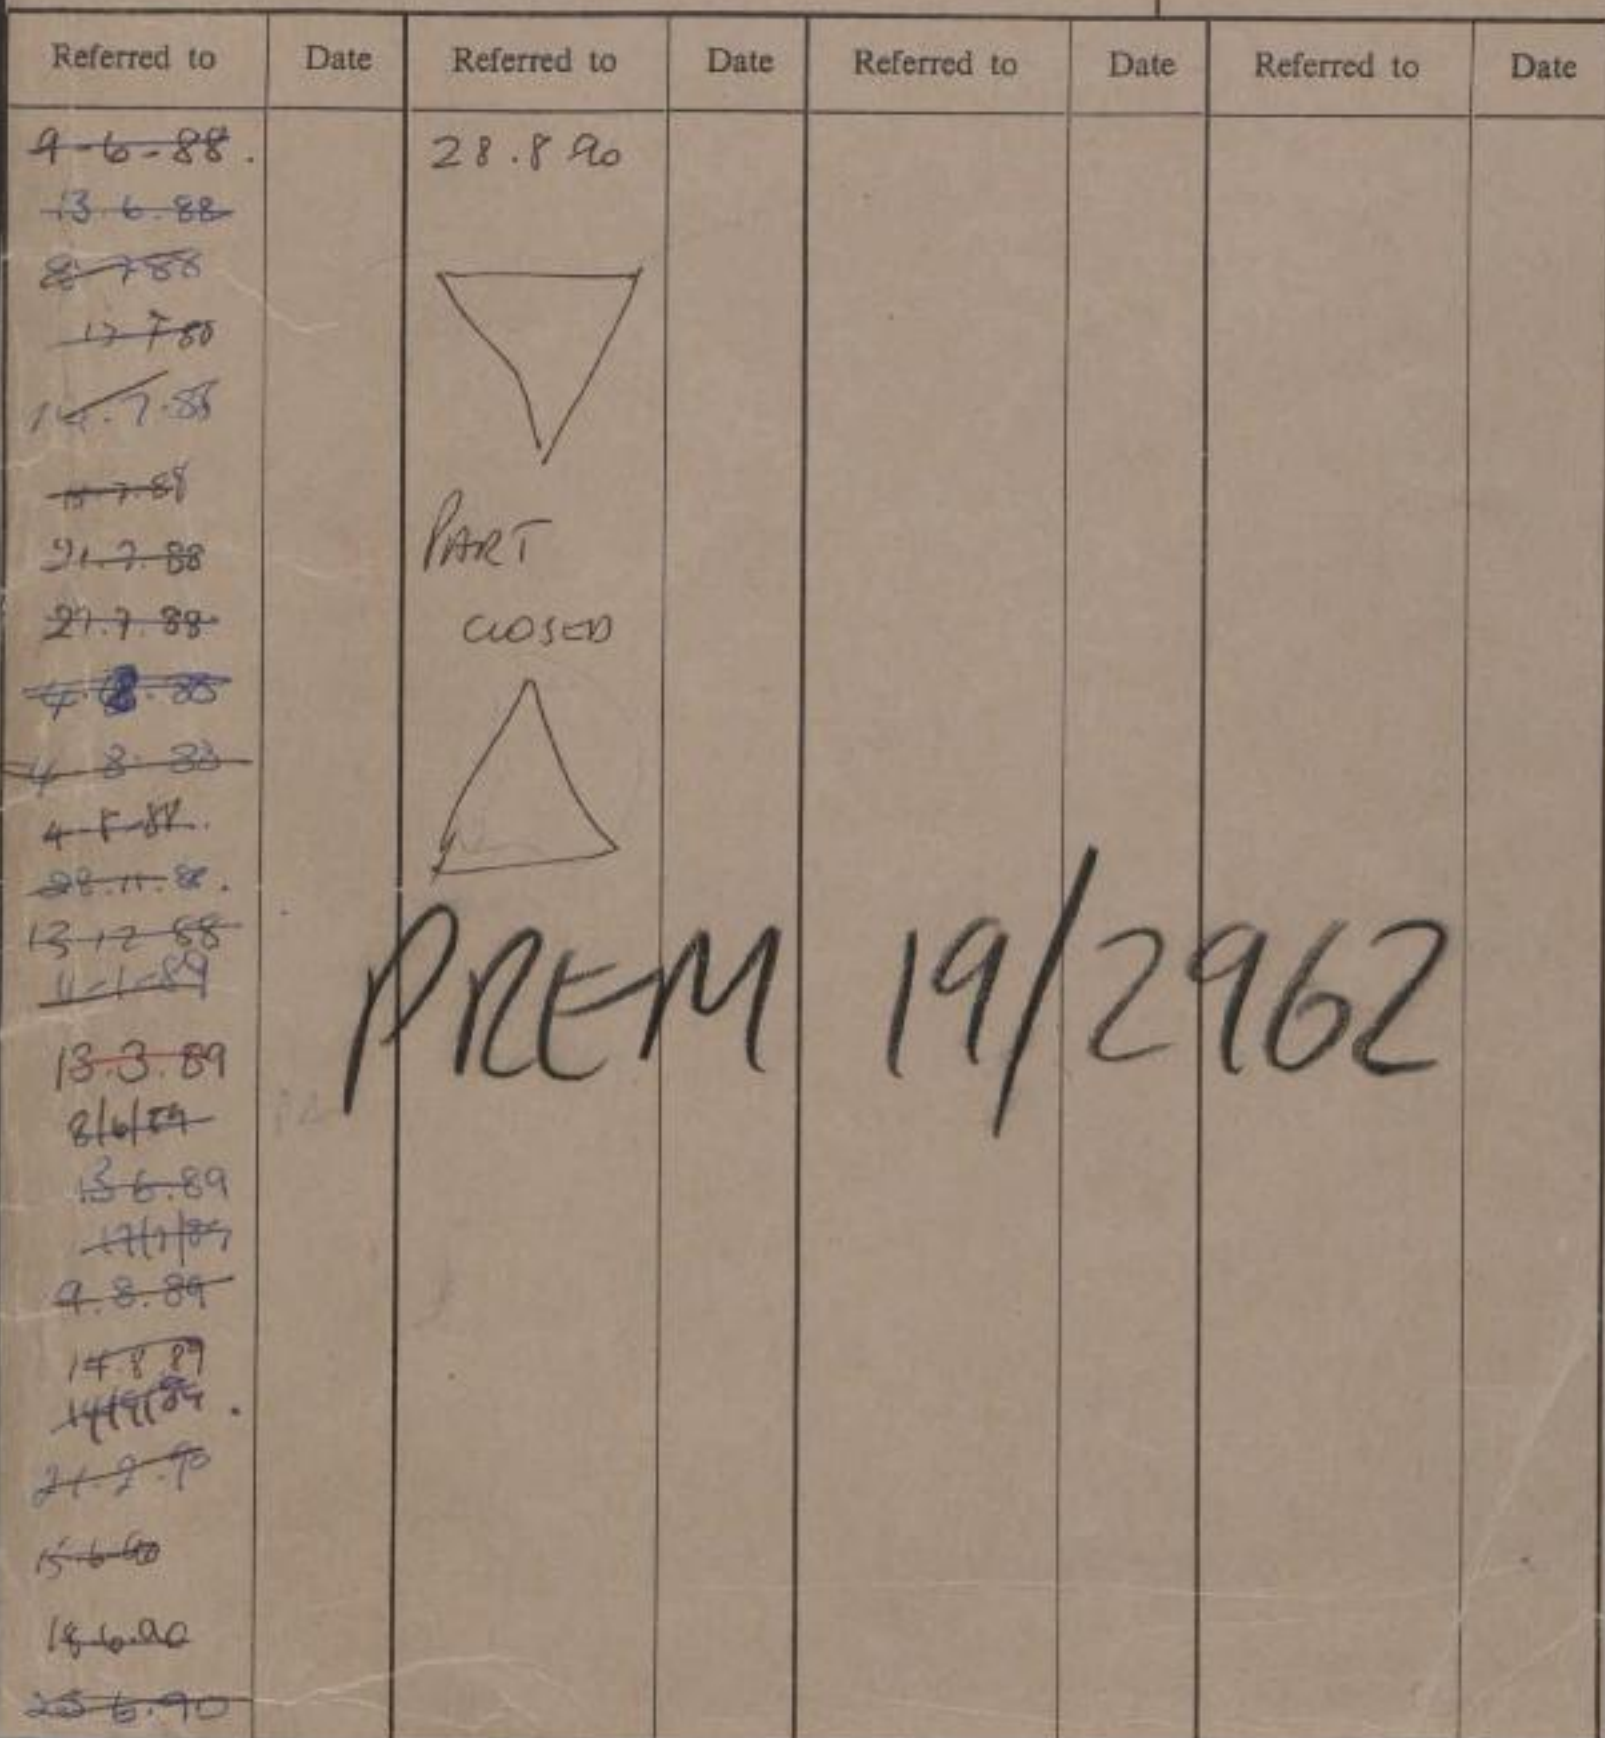 Referred to Date Referred to Date Referred to Date Referred to Date
9-6-88.
13.6.88
8.7.88
12.7.88
14.7.88
15.7.88
21.7.88
27.7.88
4.8.88
4.8.88
4-8-88.
28.11.88.
13.12.88
11-1-89
13.3.89
8/6/89
13.6.89
17/7/89
9.8.89
14.8.89
14/9/89.
21.2.90
15.6.90
18.6.90
25.6.90
28.8.90
PART
CLOSED
PREM 19/2962